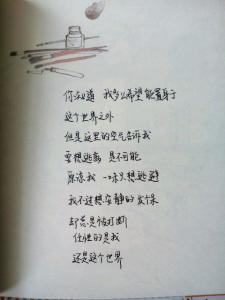 你知道 我多么希望能置身于
这个世界之外
但是这里的空气告诉我
要想逃离 是不可能
原谅我 一味只想逃避
我不过想安静的发呆
却总是被打断
任性的是我
还是这个世界